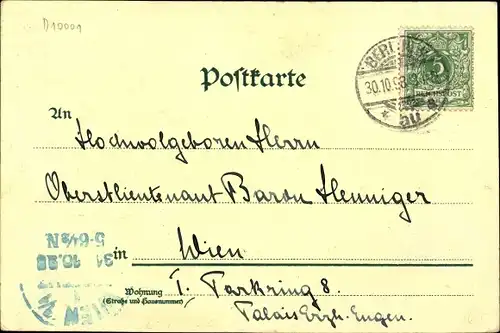 D10001
BERLIN W.
30.10.98.
* a.
au
5
REICHSPOST
Postkarte
An
Hochwolgeboren Herrn
Oberstlieutenant Baron Henniger
in Wien
Wohnung
(Straße und Hausnummer)
I. Parkring 8.
Palais Erzh. Eugen.
WIEN
31 10.98
5-6½N